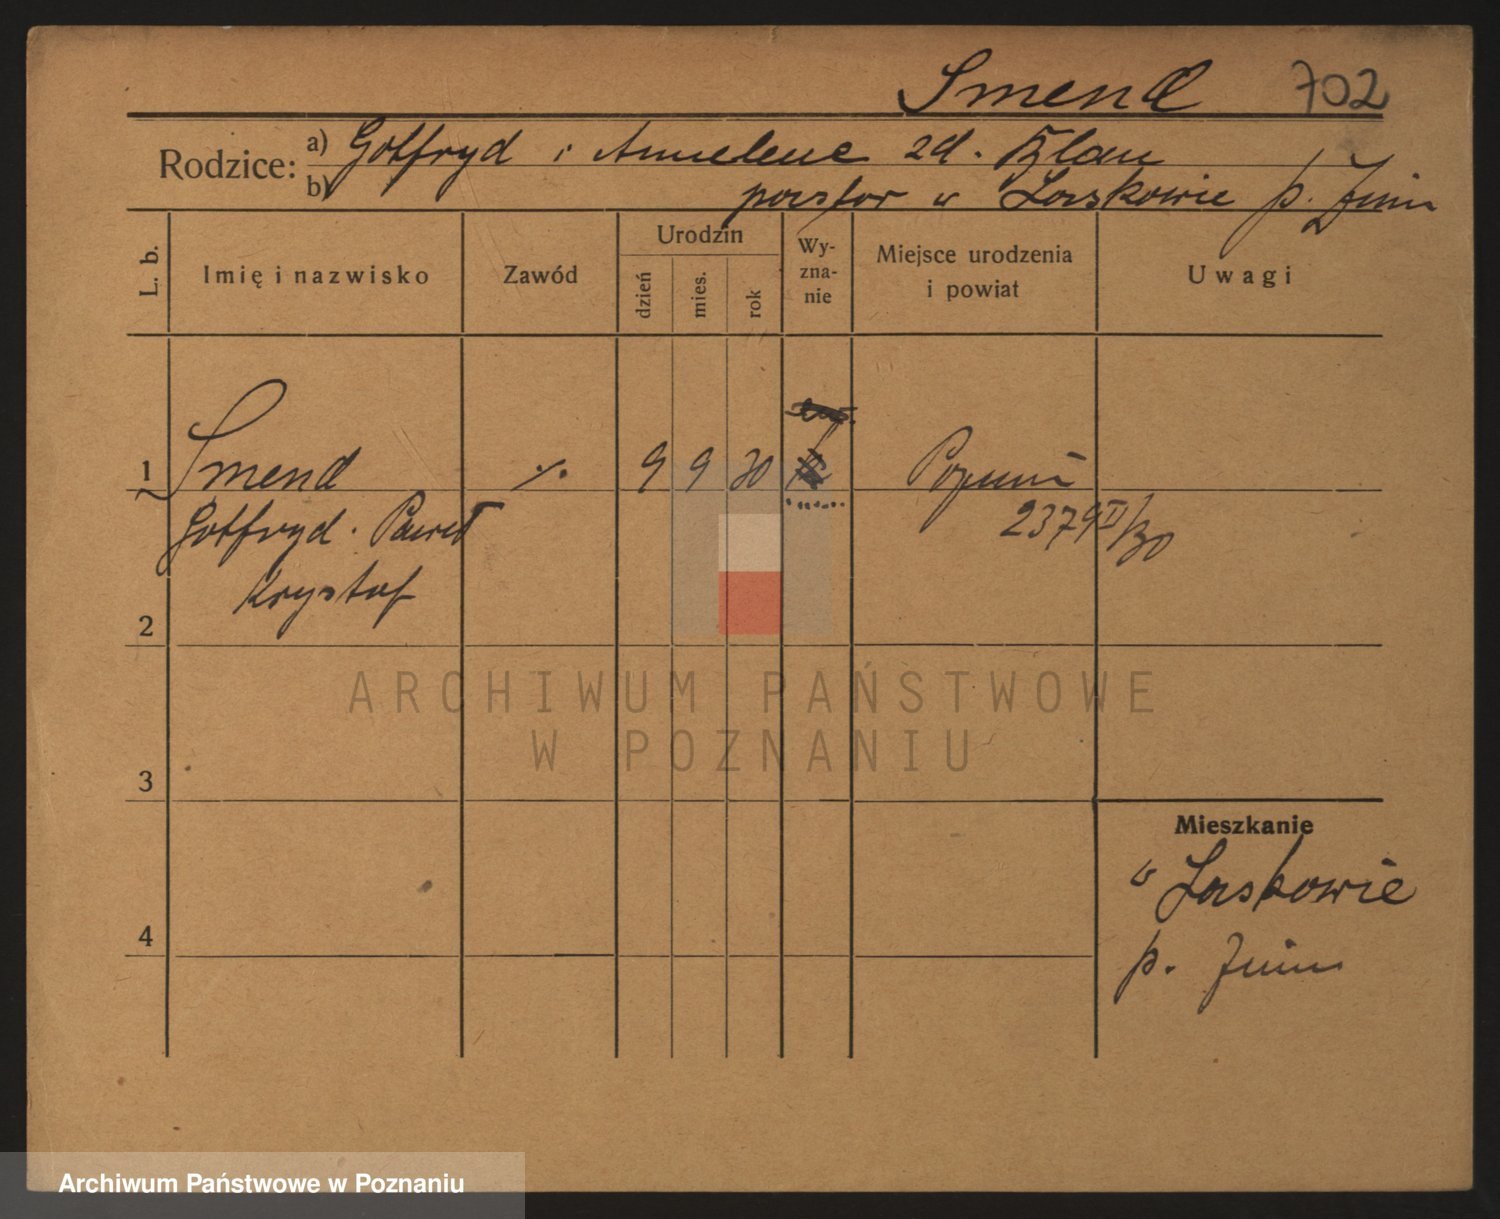 Smend 702
Rodzice: a) Gotfryd i Annelene zd. Blau
b) pastor w Laskowie p. Żnin
L. b.
Imię i nazwisko
Zawód
Urodzin
dzień
mies.
rok
Wy-
zna-
nie
Miejsce urodzenia
i powiat
Uwagi
1 Smend ./. 9 9 30 Poznań
Gotfryd. Paweł 2379 II/30
Krystof
2
3
4
Mieszkanie
w Laskowie
p. Żnin
ARCHIWUM PAŃSTWOWE
W POZNANIU
Archiwum Państwowe w Poznaniu